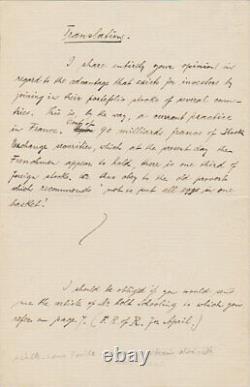 Translation.
I share entirely your opinion in
regard to the advantage that exists for investors by
joining in their portfolio stocks of several coun-
tries. This is, by the way, a current practice
in France. Out of 90 milliards francs of Stock
Exchange securities, which at the present day the
Frenchmen appear to hold, there is one third of
foreign stocks. We thus obey to the old proverb
which recommends "not to put all eggs in one
basket".
I should be obliged if you would send
me the article of Dr. to which you
refer on page 7. ( of R. for April.)